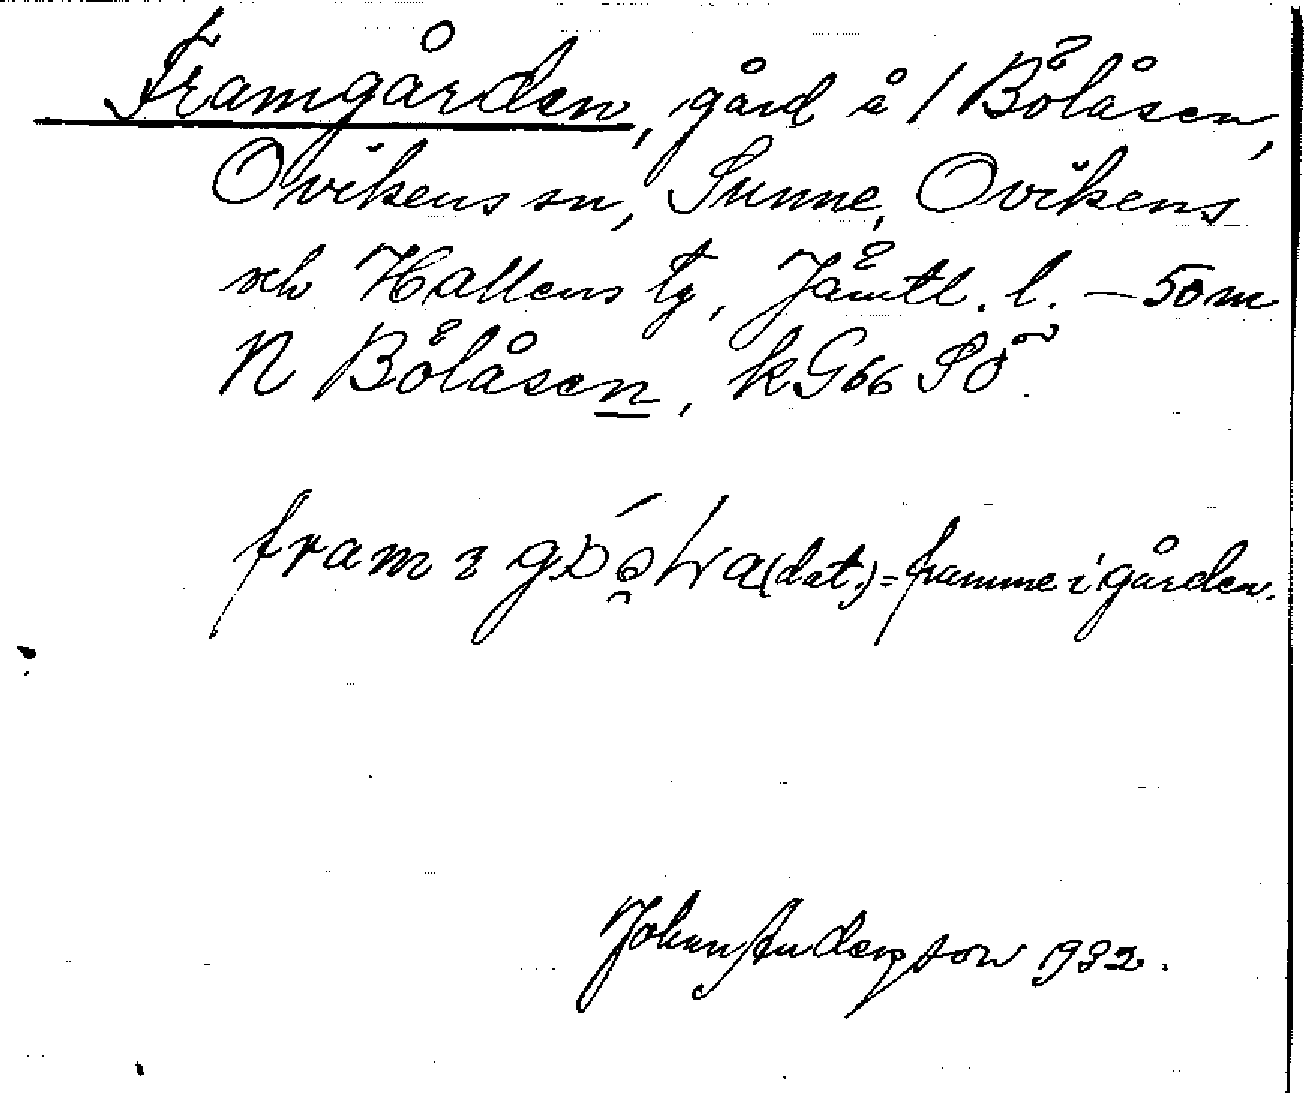 Framgården, gård å 1 Bölåsen,
Ovikens sn, Sunne, Ovikens
och Hallens tg, Jämtl. l. — 50 m
N Bölåsen, kG66 SÖ.
fram i (dat.) = framme i gården.
Johan Andersson 1932.